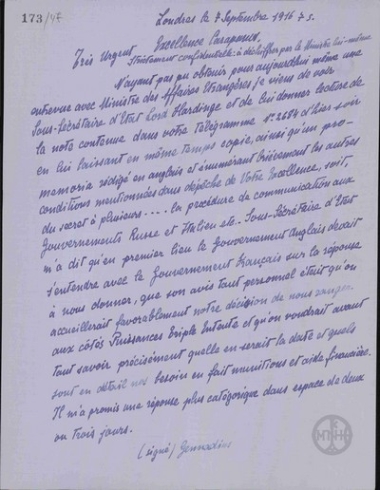 173/47
Londres le 7 Septembre 1916 7 s.
Très Urgent Excellence Carapanos.
Strictement confidentielle: à déchiffrer par le Ministre lui-même
N'ayant pas pu obtenir pour aujourdhui même une
entrevue avec Ministre des Affaires Etrangères je viens de voir
Sous-Secrétaire d'Etat Lord Hardinge et de lui donner lecture de
la note contenue dans votre Télégramme No d'hier soir
en lui laissant en même temps copie, ainsi qu'en pro-
memoria rédigé en anglais et énumérant brièvement les autres
conditions mentionnées dans dépêche de Votre Excellence, soit,
du secret à plusieurs .... la procédure de communication aux
Gouvernements Russe et Italien etc. Sous-Secrétaire d'Etat
m'a dit qu'en premier lieu le Gouvernement Anglais devait
s'entendre avec le Gouvernement Français sur la réponse
à nous donner, que son avis tant personnel était qu'on
accueillerait favorablement notre décision de nous ranger
aux côtés Puissances Triple Entente et qu'on voudrait avant
tout savoir précisément quelle en serait la date et quels
sont en détail nos besoins en fait munitions et aide financière.
Il m'a promis une réponse plus catégorique dans espace de deux
ou trois jours.
(signé) Gennadius